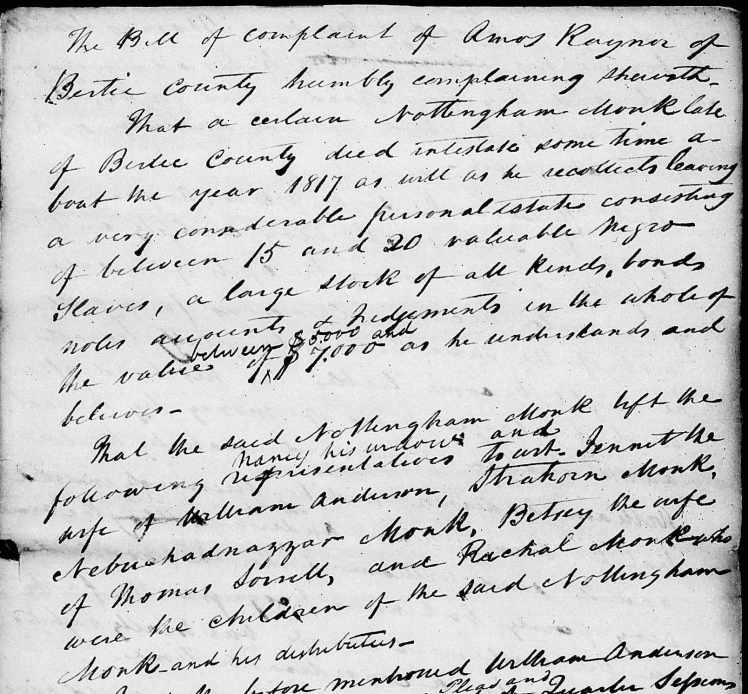 The Bill of complaint of Amos Raynor of
Bertie County humbly complaining sheweth-
That a certain Nottingham Monk late
of Bertie County died intestate some time a-
bout the year 1817 as well as he recollects leaving
a very considerable personal estate consisting
of between 15 and 20 valuable Negro
slaves, a large stock of all kinds, bonds
notes accounts & Judgements in the whole of
between $5.000 and
the value of $7.000 as he understands and
believes-
That the said Nottingham Monk left the
Nancy his widow and
following representatives to wit. Jennet the
wife of William Anderson, Strahorn Monk,
Nebuchadnazzar Monk, Betsey the wife
of Thomas Sorrell, and Rachal Monk who
were the children of the said Nottingham
Monk and his distributees-
before mentioned William Anderson
Pleas and
Quarter Sessions